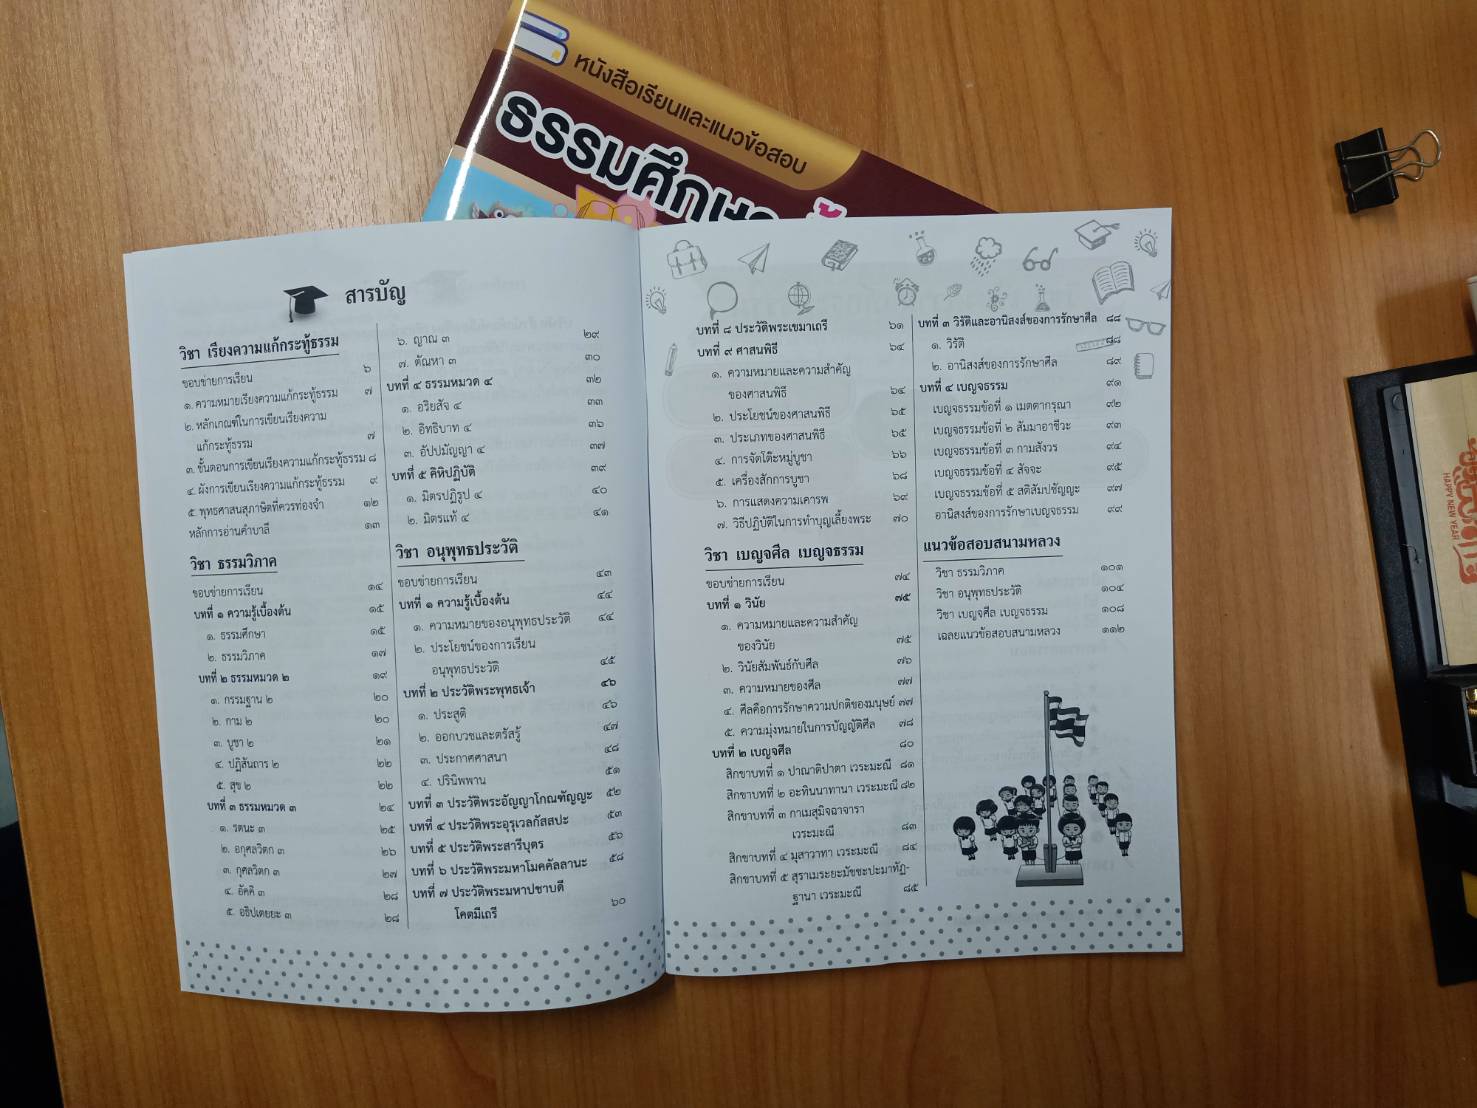 หนังสือเรียนและแนวข้อสอบ
ธรรมศึกษา
สารบัญ
วิชา เรียงความแก้กระทู้ธรรม
ขอบข่ายการเรียน ๖
๑. ความหมายเรียงความแก้กระทู้ธรรม ๗
๒. หลักเกณฑ์ในการเขียนเรียงความ
แก้กระทู้ธรรม ๗
๓. ขั้นตอนการเขียนเรียงความแก้กระทู้ธรรม ๘
๔. ผังการเขียนเรียงความแก้กระทู้ธรรม ๙
๕. พุทธศาสนสุภาษิตที่ควรท่องจำ ๑๒
หลักการอ่านคำบาลี ๑๓
วิชา ธรรมวิภาค
ขอบข่ายการเรียน ๑๔
บทที่ ๑ ความรู้เบื้องต้น ๑๕
๑. ธรรมศึกษา ๑๕
๒. ธรรมวิภาค ๑๗
บทที่ ๒ ธรรมหมวด ๒ ๑๙
๑. กรรมฐาน ๒ ๒๐
๒. กาม ๒ ๒๐
๓. บูชา ๒ ๒๑
๔. ปฏิสันถาร ๒ ๒๒
๕. สุข ๒ ๒๒
บทที่ ๓ ธรรมหมวด ๓ ๒๔
๑. รตนะ ๓ ๒๕
๒. อกุศลวิตก ๓ ๒๖
๓. กุศลวิตก ๓ ๒๗
๔. อัคคิ ๓ ๒๘
๕. อธิปเตยยะ ๓ ๒๘
๖. ญาณ ๓ ๒๙
๗. ตัณหา ๓ ๓๐
บทที่ ๔ ธรรมหมวด ๔ ๓๒
๑. อริยสัจ ๔ ๓๓
๒. อิทธิบาท ๔ ๓๖
๓. อัปปมัญญา ๔ ๓๗
บทที่ ๕ คิหิปฏิบัติ ๓๙
๑. มิตรปฏิรูป ๔ ๔๐
๒. มิตรแท้ ๔ ๔๑
วิชา อนุพุทธประวัติ
ขอบข่ายการเรียน ๔๓
บทที่ ๑ ความรู้เบื้องต้น ๔๔
๑. ความหมายของอนุพุทธประวัติ ๔๔
๒. ประโยชน์ของการเรียน
อนุพุทธประวัติ ๔๕
บทที่ ๒ ประวัติพระพุทธเจ้า ๔๖
๑. ประสูติ ๔๖
๒. ออกบวชและตรัสรู้ ๔๗
๓. ประกาศศาสนา ๔๘
๔. ปรินิพพาน ๕๑
บทที่ ๓ ประวัติพระอัญญาโกณฑัญญะ ๕๒
บทที่ ๔ ประวัติพระอุรุเวลกัสสปะ ๕๓
บทที่ ๕ ประวัติพระสารีบุตร ๕๖
บทที่ ๖ ประวัติพระมหาโมคคัลลานะ ๕๘
บทที่ ๗ ประวัติพระมหาปชาบดี
โคตมีเถรี ๖๐
บทที่ ๘ ประวัติพระเขมาเถรี ๖๑
บทที่ ๙ ศาสนพิธี ๖๔
๑. ความหมายและความสำคัญ
ของศาสนพิธี ๖๔
๒. ประโยชน์ของศาสนพิธี ๖๕
๓. ประเภทของศาสนพิธี ๖๕
๔. การจัดโต๊ะหมู่บูชา ๖๖
๕. เครื่องสักการบูชา ๖๘
๖. การแสดงความเคารพ ๖๙
๗. วิธีปฏิบัติในการทำบุญเลี้ยงพระ ๗๐
วิชา เบญจศีล เบญจธรรม
ขอบข่ายการเรียน ๗๔
บทที่ ๑ วินัย ๗๕
๑. ความหมายและความสำคัญ
ของวินัย ๗๕
๒. วินัยสัมพันธ์กับศีล ๗๖
๓. ความหมายของศีล ๗๗
๔. ศีลคือการรักษาความปกติของมนุษย์ ๗๗
๕. ความมุ่งหมายในการบัญญัติศีล ๗๘
บทที่ ๒ เบญจศีล ๘๐
สิกขาบทที่ ๑ ปาณาติปาตา เวระมะณี ๘๑
สิกขาบทที่ ๒ อะทินนาทานา เวระมะณี ๘๒
สิกขาบทที่ ๓ กาเมสุมิจฉาจารา
เวระมะณี ๘๓
สิกขาบทที่ ๔ มุสาวาทา เวระมะณี ๘๔
สิกขาบทที่ ๕ สุราเมระยะมัชชะปะมาทัฏ-
ฐานา เวระมะณี ๘๕
บทที่ ๓ วิรัติและอานิสงส์ของการรักษาศีล ๘๘
๑. วิรัติ ๘๘
๒. อานิสงส์ของการรักษาศีล ๘๙
บทที่ ๔ เบญจธรรม ๙๑
เบญจธรรมข้อที่ ๑ เมตตากรุณา ๙๒
เบญจธรรมข้อที่ ๒ สัมมาอาชีวะ ๙๓
เบญจธรรมข้อที่ ๓ กามสังวร ๙๔
เบญจธรรมข้อที่ ๔ สัจจะ ๙๕
เบญจธรรมข้อที่ ๕ สติสัมปชัญญะ ๙๗
อานิสงส์ของการรักษาเบญจธรรม ๙๙
แนวข้อสอบสนามหลวง
วิชา ธรรมวิภาค ๑๐๑
วิชา อนุพุทธประวัติ ๑๐๔
วิชา เบญจศีล เบญจธรรม ๑๐๘
เฉลยแนวข้อสอบสนามหลวง ๑๑๒
HAPPY NEW YEAR